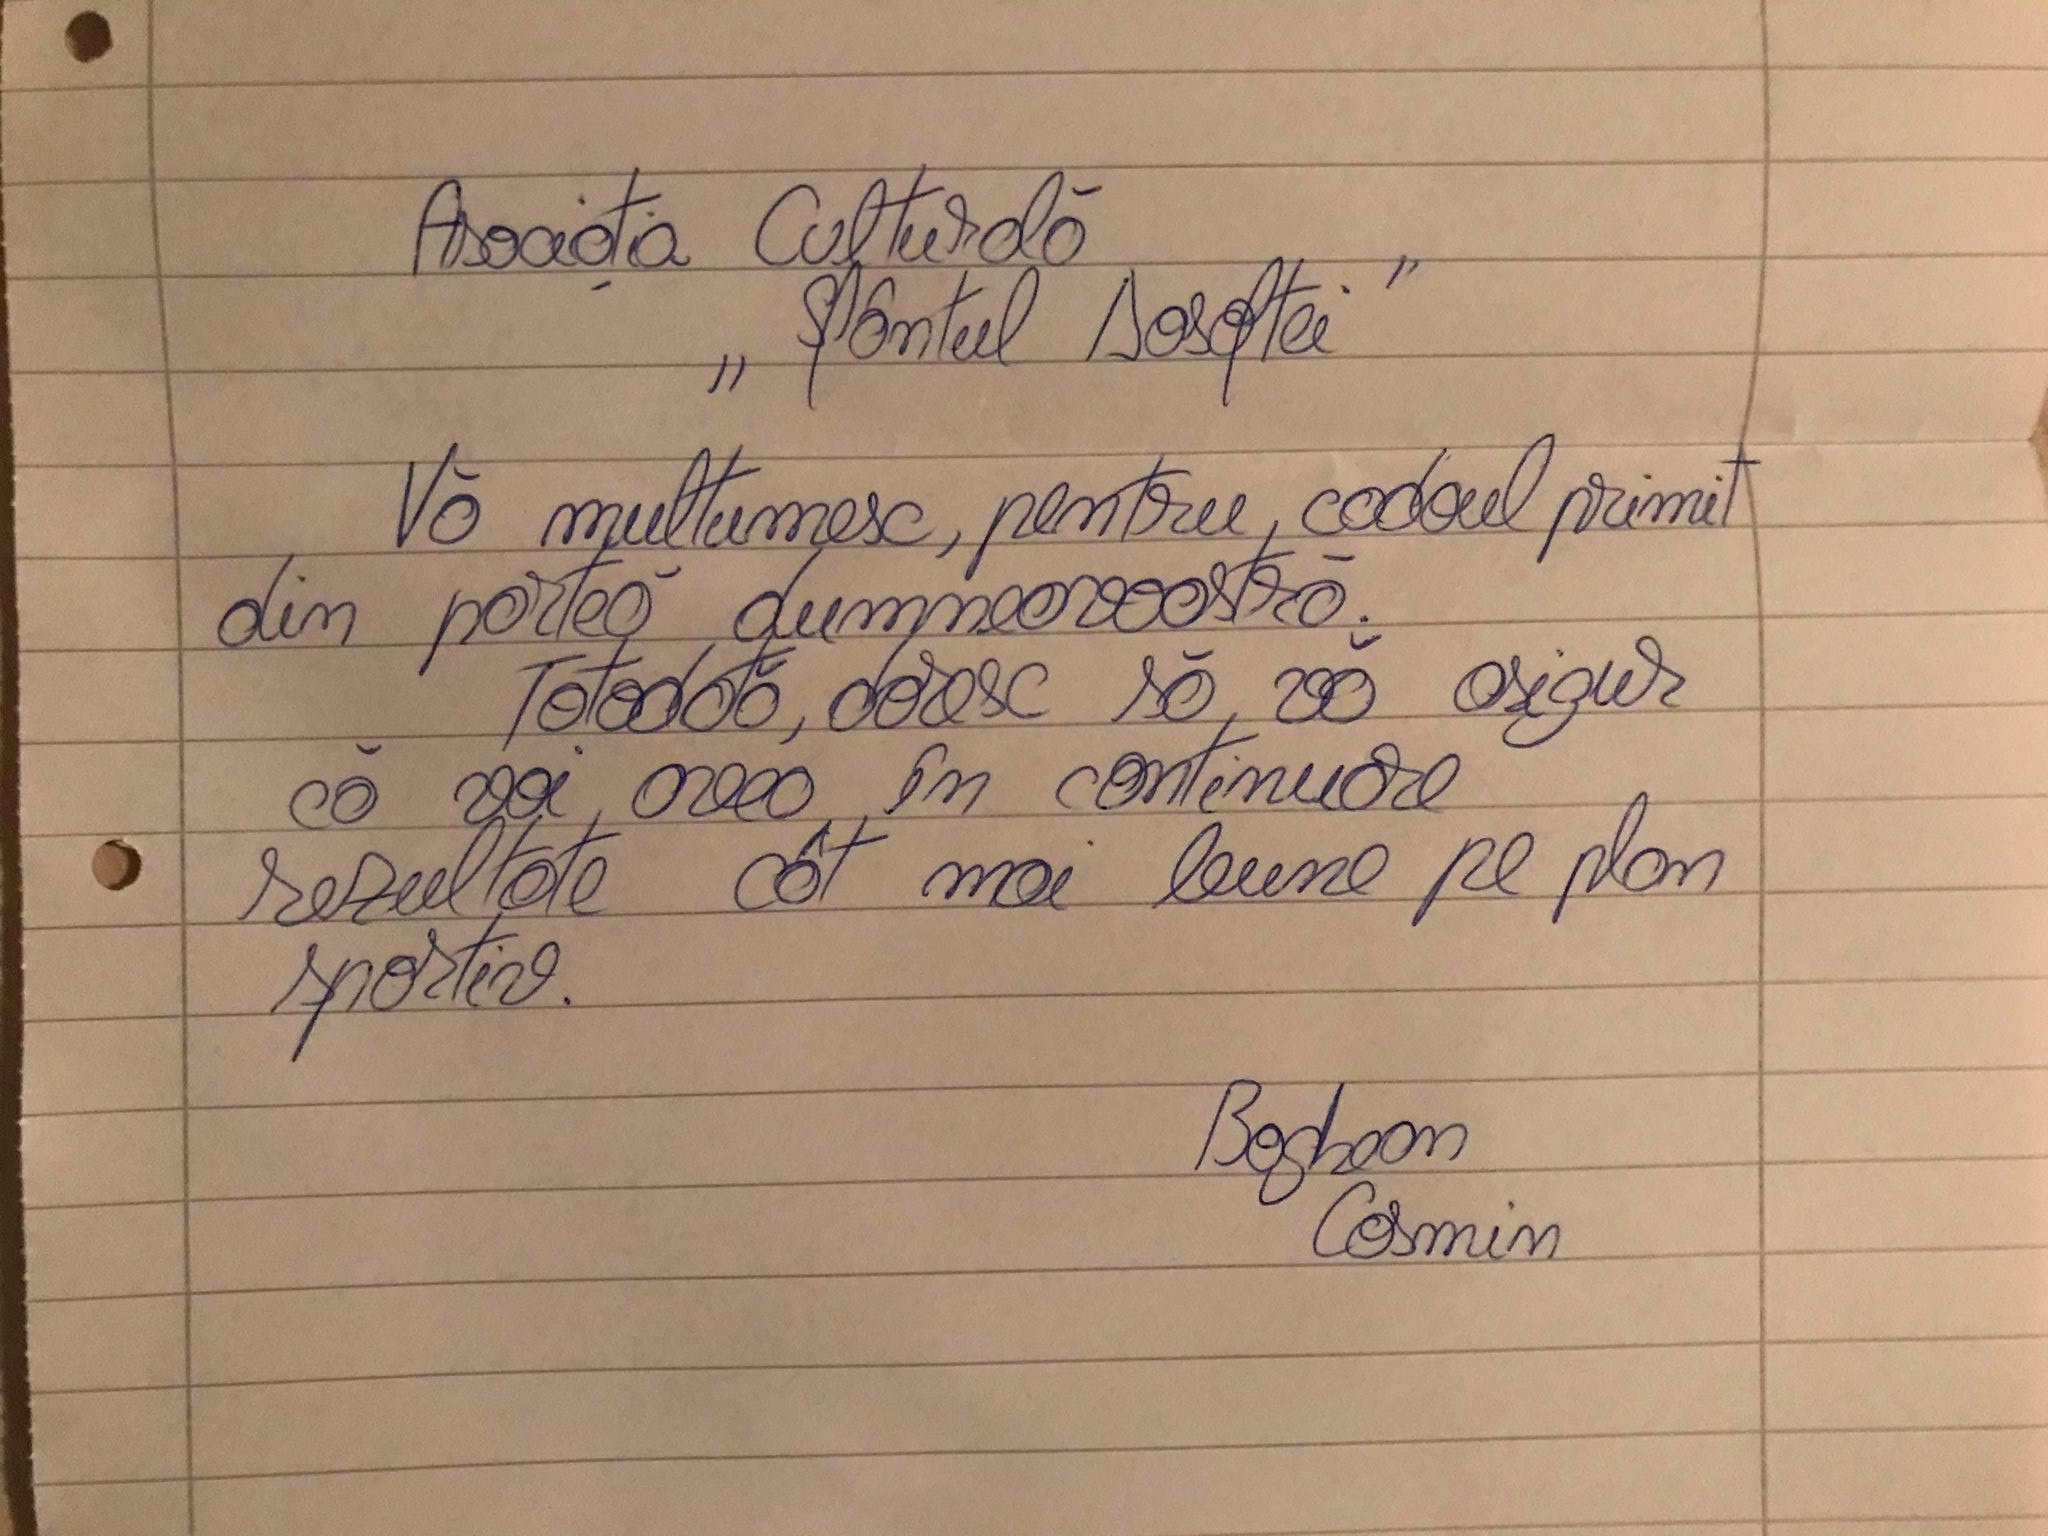 Asociația Culturală
„Sfântul Dosoftei”
Vă multumesc, pentru, cadoul primit
din parteă dumneavoastră.
Totodată, doresc să, vă asigur
că voi, avea, în continuare
rezultate cât mai bune pe plan
sportiv.
Boghean
Cosmin